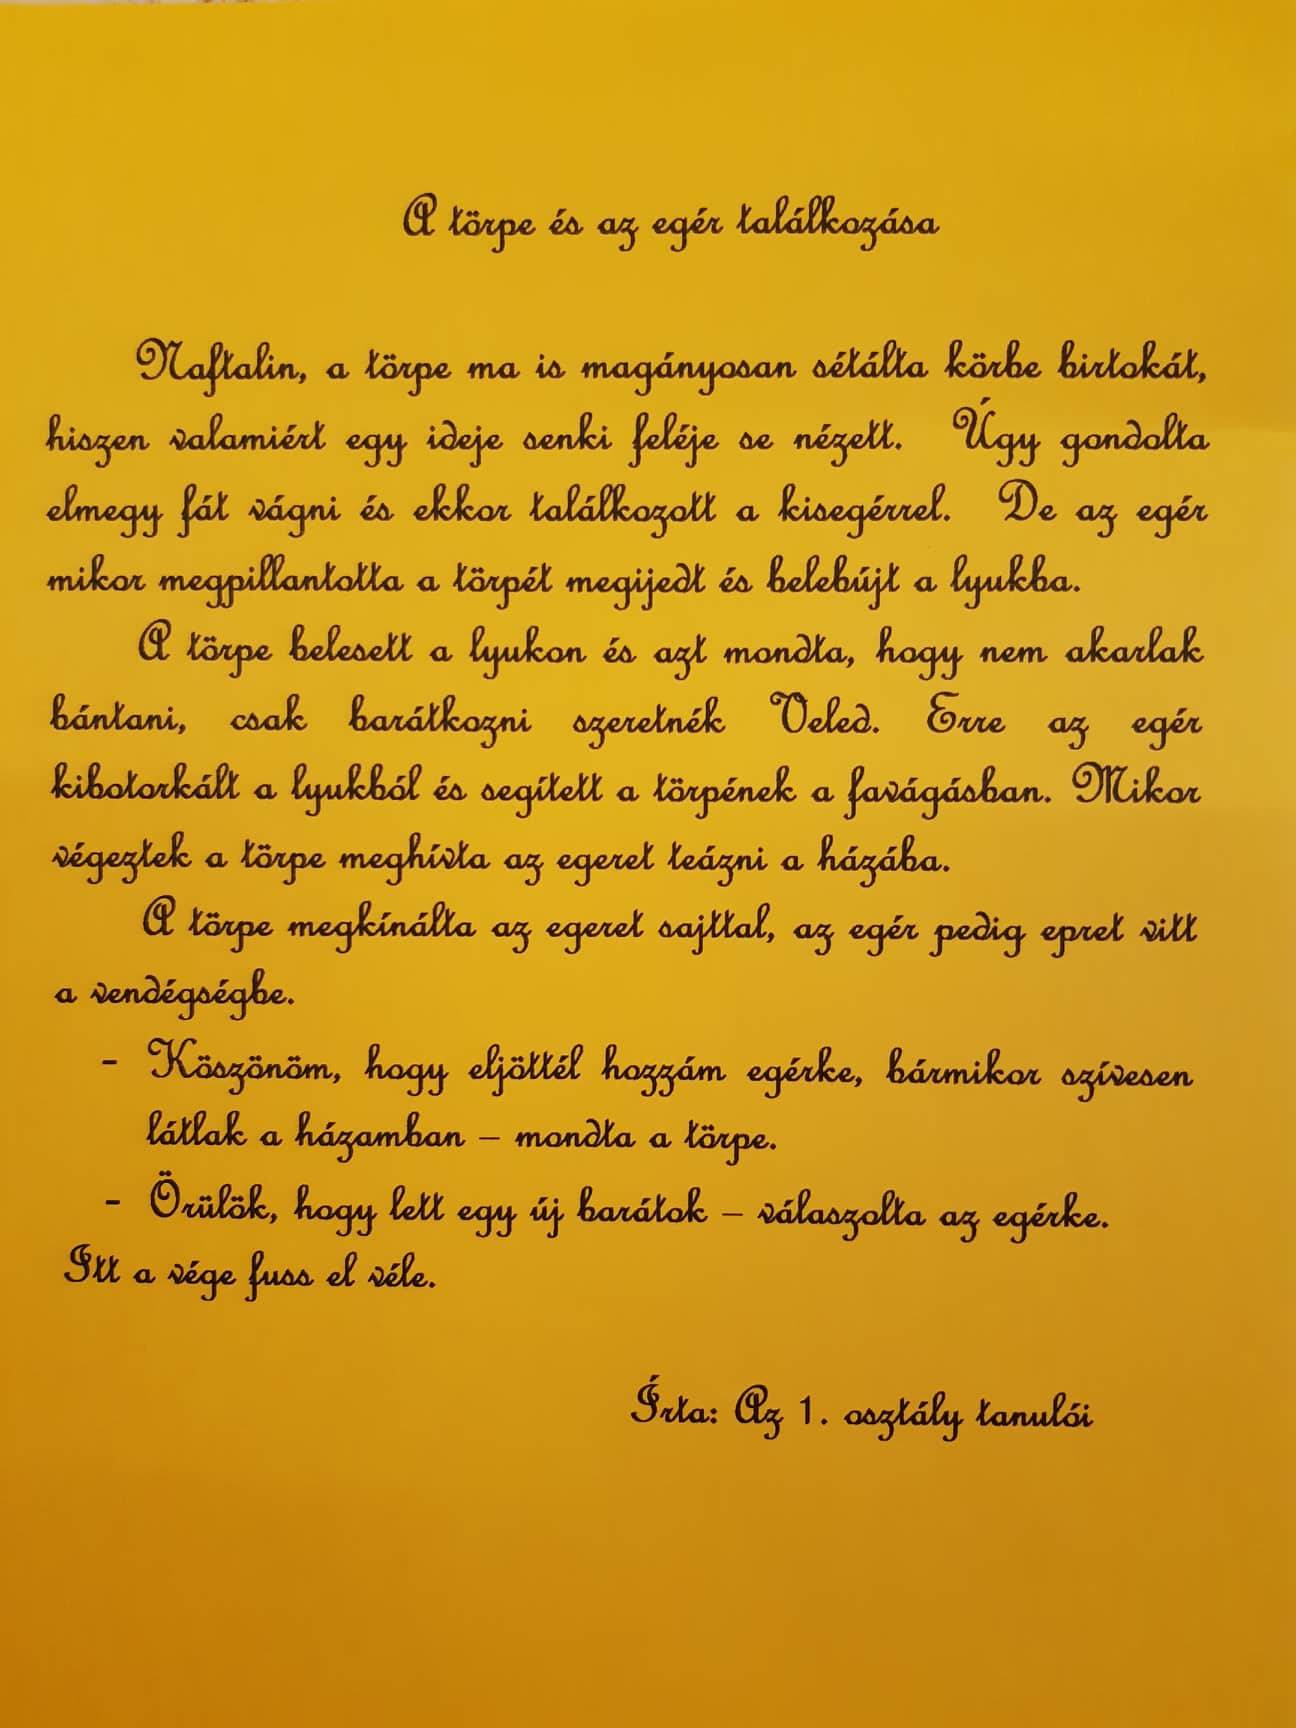 A törpe és az egér találkozása
Naftalin, a törpe ma is magányosan sétálta körbe birtokát,
hiszen valamiért egy ideje senki feléje se nézett. Úgy gondolta
elmegy fát vágni és ekkor találkozott a kisegérrel. De az egér
mikor megpillantotta a törpét megijedt és belebújt a lyukba.
A törpe belesett a lyukon és azt mondta, hogy nem akarlak
bántani, csak barátkozni szeretnék Veled. Erre az egér
kibotorkált a lyukból és segített a törpének a favágásban. Mikor
végeztek a törpe meghívta az egeret teázni a házába.
A törpe megkínálta az egeret sajttal, az egér pedig epret vitt
a vendégségbe.
- Köszönöm, hogy eljöttél hozzám egérke, bármikor szívesen
látlak a házamban – mondta a törpe.
- Örülök, hogy lett egy új barátok – válaszolta az egérke.
Itt a vége fuss el véle.
Írta: Az 1. osztály tanulói